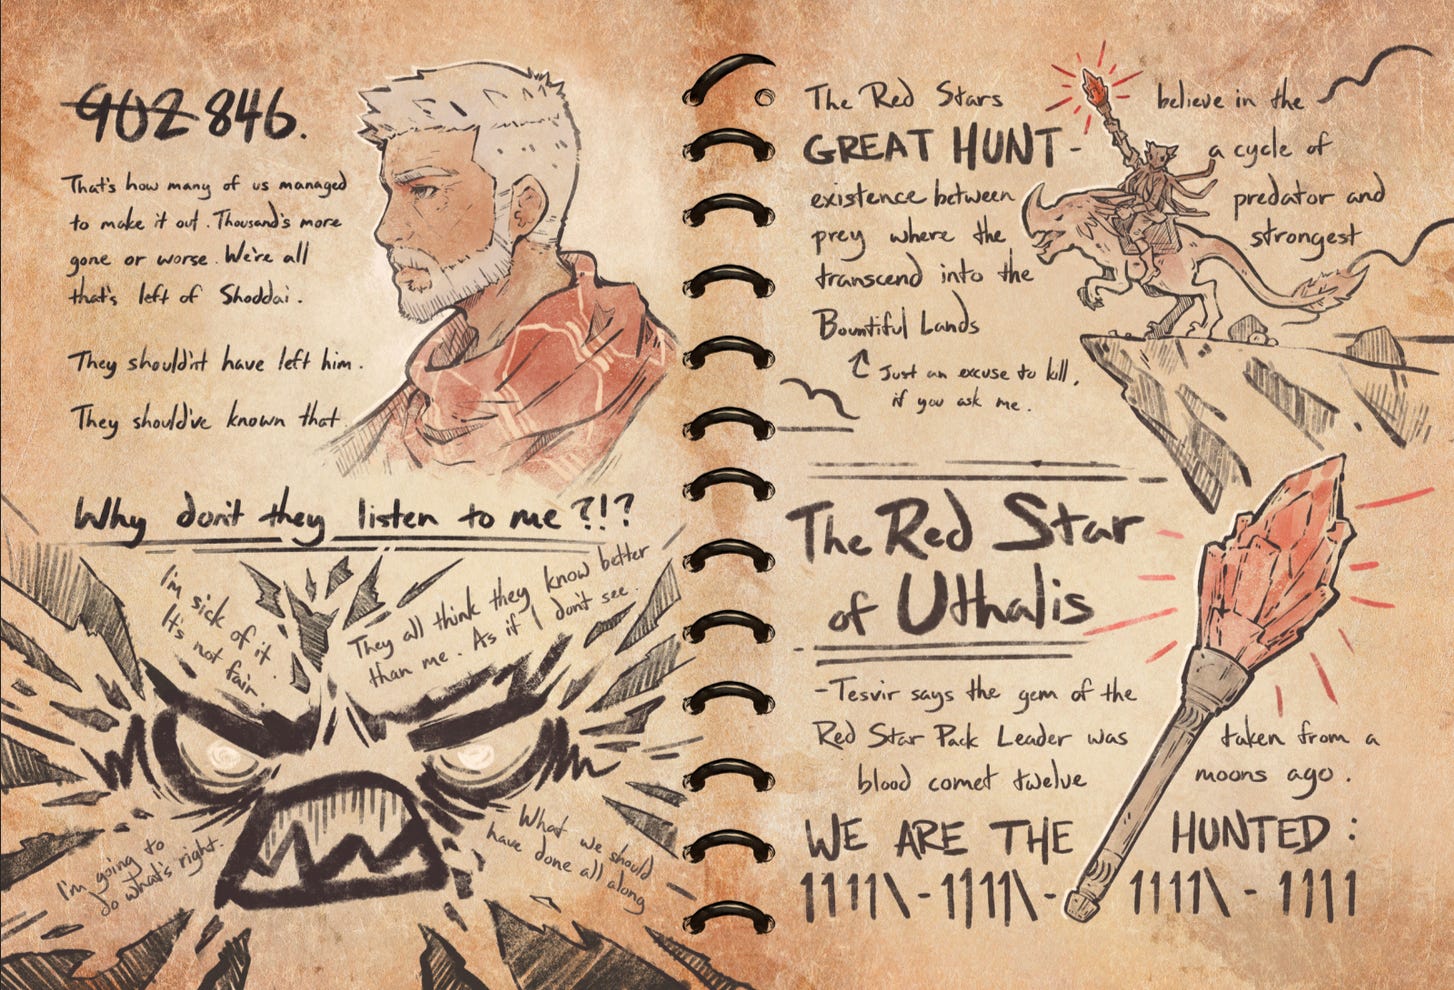 902 846.
That's how many of us managed
to make it out. Thousand's more
gone or worse. We're all
that's left of Shoddai.
They shouldn't have left him.
They should've known that
Why don't they listen to me ?!?
I'm sick of it.
It's not fair
They all think they know better
than me. As if I don't see.
I'm going to
do what's right.
What we should
have done all along
The Red Stars believe in the
GREAT HUNT - a cycle of
existence between predator and
prey where the strongest
transcend into the
Bountiful Lands
Just an excuse to kill,
if you ask me.
The Red Star
of Uthalis
-Tesvir says the gem of the
Red Star Pack Leader was taken from a
blood comet twelve moons ago.
WE ARE THE HUNTED:
1111\-1111\-1111\-1111